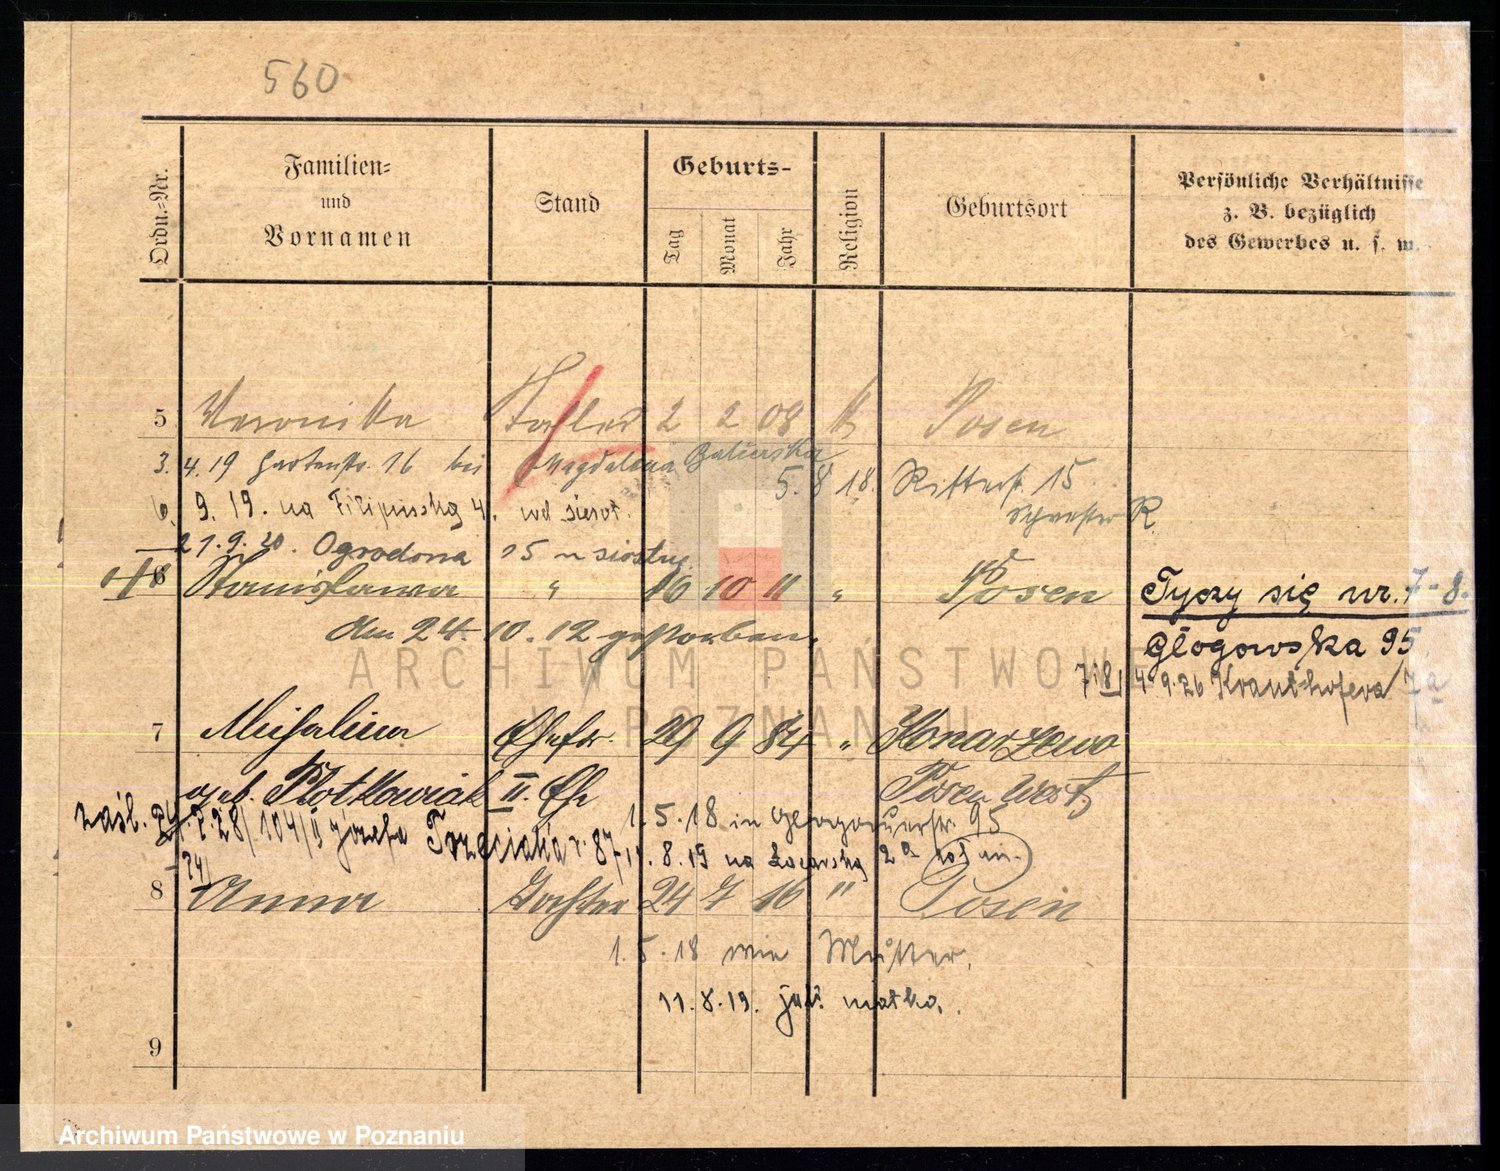 560
Ordn.-Nr.
Familien-
und
Vornamen
Stand
Geburts-
Tag
Monat
Jahr
Religion
Geburtsort
Persönliche Verhältnisse
z. B. bezüglich
des Gewerbes u. s. w.
5 Veronika Tochter 2 2 08 k Posen
3. 4. 19 Gartenstr. 16 bei Magdalena
5. 8 18. Ritterst. 15
Schwester R.
6. 9. 19. na 4.
21. 9. 20. Ogrodowa 15 u siostry
6 Stanisława " 16 10 11 " Posen
den 24. 10. 12 gestorben.
Tyczy się nr. 7-8.
Głogowska 95
7i8 4. 9. 26 Krauthofera 7a
7 Michalina Ehefr. 29 9 84 " Konarzewo
geb. Plotkowiak II. Ehe Posen West
zaśl. 24. 7. 28/104/II Józefa Trzeciaka r. 87
1. 5. 18 in Glogauerstr. 95
11. 8. 19 na 2a
8 Anna Tochter 24 7 16 " Posen
1. 5. 18 wie Mutter.
11. 8. 19. jak matka.
9
ARCHIWUM PAŃSTWOWE
W POZNANIU
Archiwum Państwowe w Poznaniu